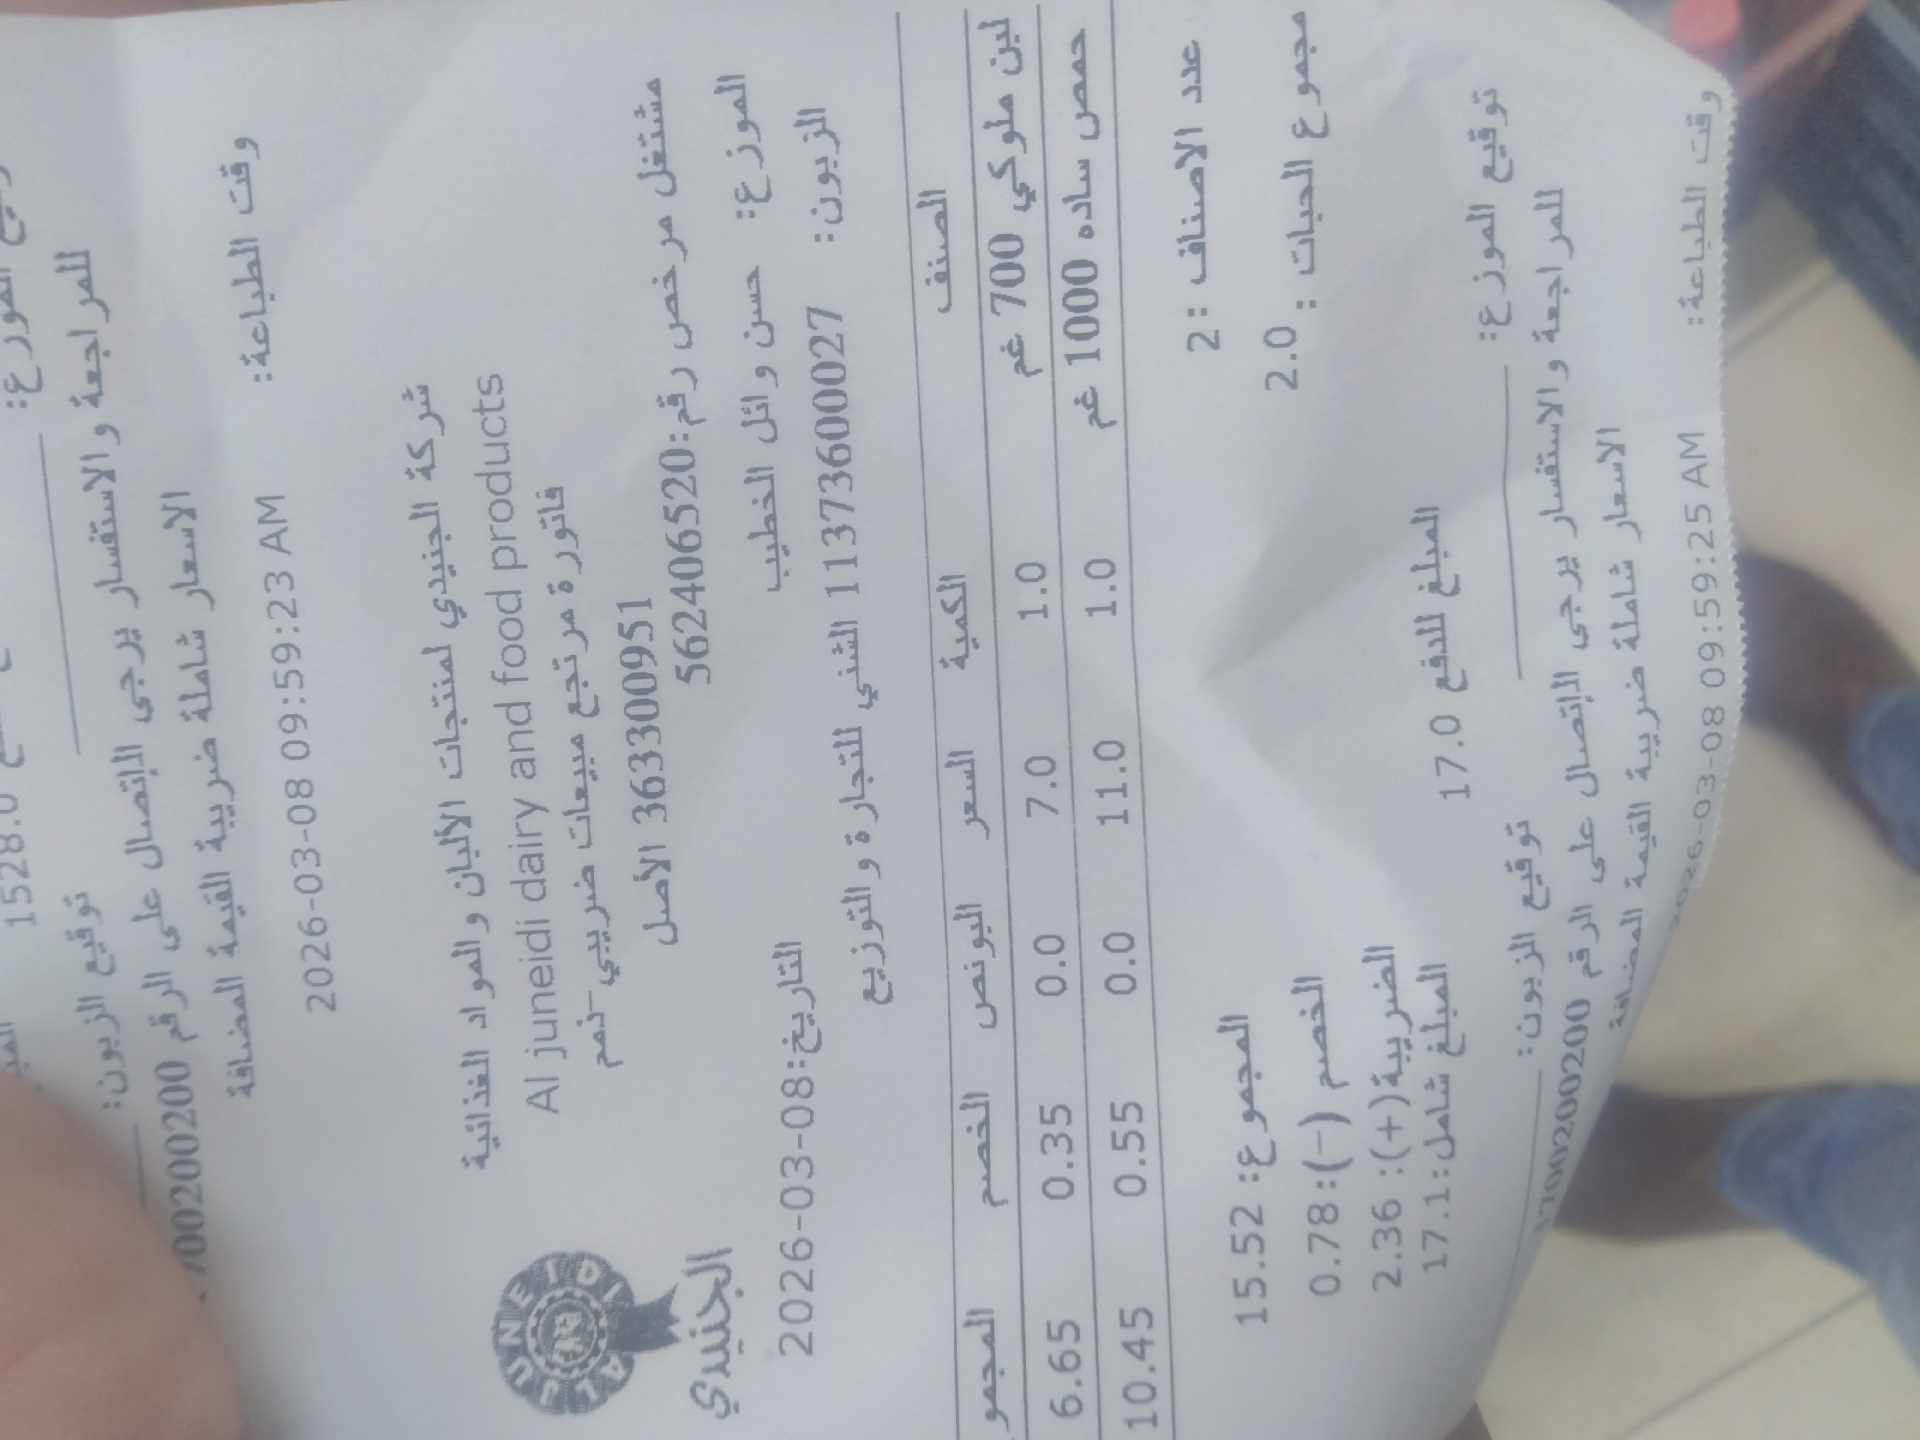 1528.0
توقيع الزبون: توقيع الموزع:
للمراجعة والاستفسار يرجى الاتصال على الرقم 1700200200
الاسعار شاملة ضريبة القيمة المضافة
وقت الطباعة: 2026-03-08 09:59:23 AM
شركة الجنيدي لمنتجات الألبان والمواد الغذائية
Al juneidi dairy and food products
فاتورة مرتجع مبيعات ضريبي-ذمم
363300951 الأصل
مشتغل مرخص رقم:562406520
AL JUNEIDI
الجنيدي
الموزع: حسن وائل الخطيب
التاريخ:2026-03-08
الزبون: 1137360027 الشني للتجارة والتوزيع
الصنف الكمية السعر البونص الخصم المجمو
لبن ملوكي 700 غم 1.0 7.0 0.0 0.35 6.65
حمص ساده 1000 غم 1.0 11.0 0.0 0.55 10.45
عدد الاصناف :2 المجموع: 15.52
مجموع الحبات : 2.0 الخصم (-):0.78
الضريبة(+): 2.36
المبلغ للدفع 17.0 المبلغ شامل:17.1
توقيع الموزع: توقيع الزبون:
للمراجعة والاستفسار يرجى الاتصال على الرقم 1700200200
الاسعار شاملة ضريبة القيمة المضافة
وقت الطباعة: 2026-03-08 09:59:25 AM